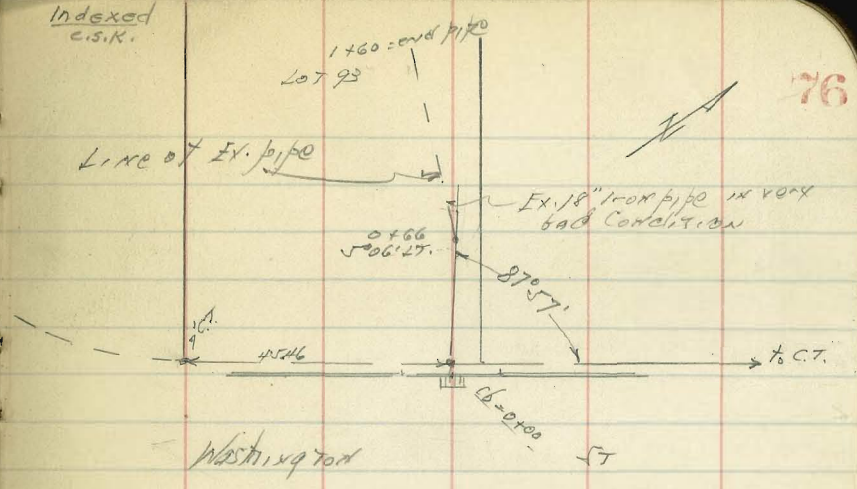 Indexed
C.S.K.
1+60 = end pipe
LOT 93
76
Line of Ex. pipe
Ex. 18" Iron pipe in very
bad Condition
0+66
5°06' LT.
87°57'
C.T.
45.46
to C.T.
CB = 0+00
Washington ST